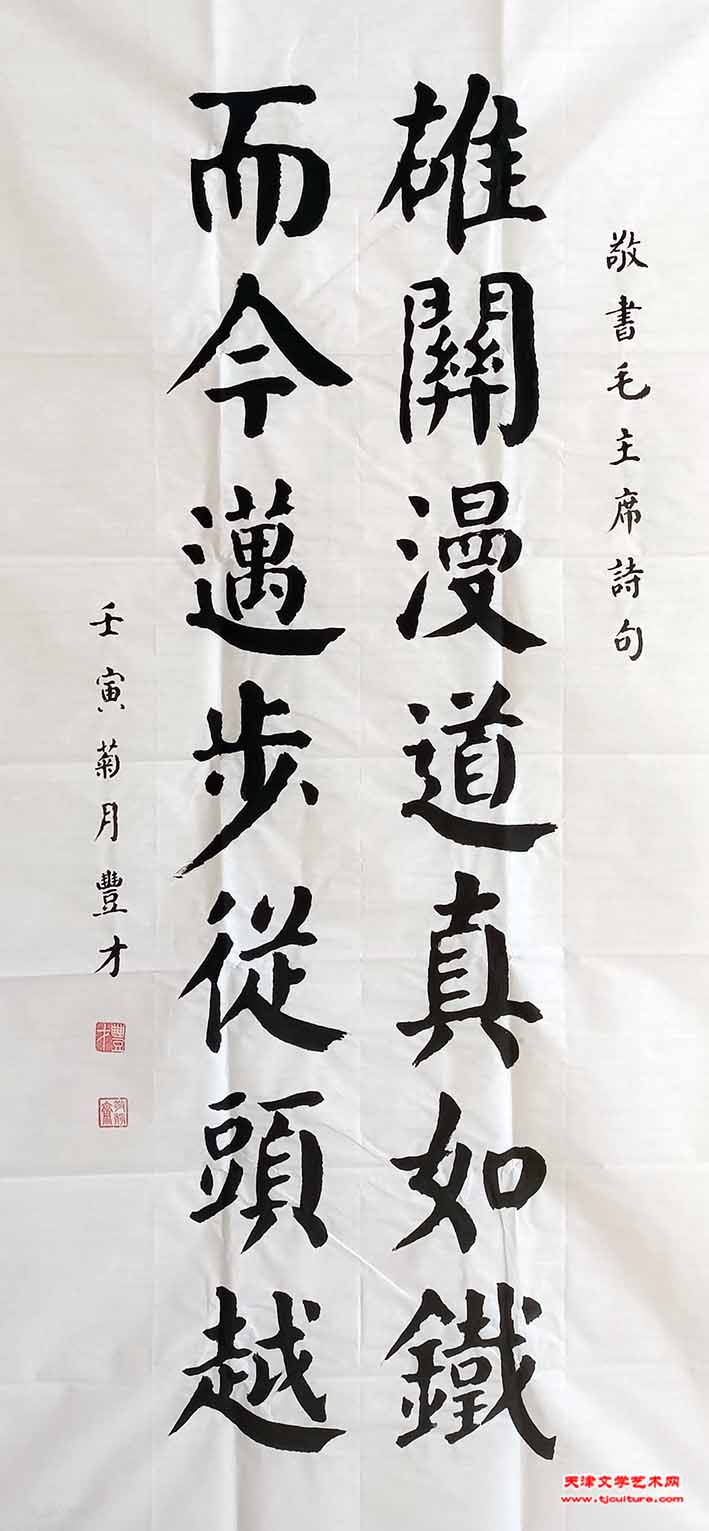 敬書毛主席詩句
雄關漫道真如鐵
而今邁步從頭越
壬寅菊月豐才
豐才
天津文学艺术网
www.tjculture.com